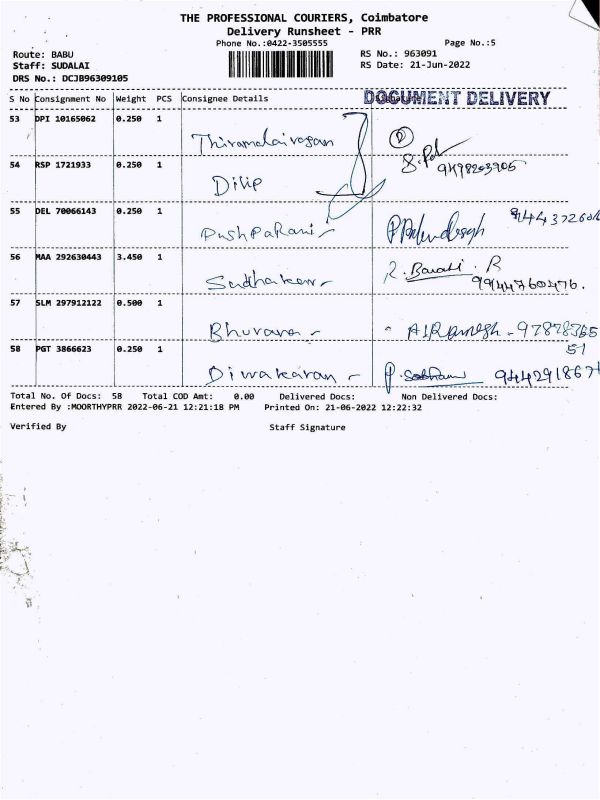 THE PROFESSIONAL COURIERS, Coimbatore
Delivery Runsheet - PRR
Phone No.:0422-3505555 Page No.:5
Route: BABU RS No.: 963091
Staff: SUDALAI RS Date: 21-Jun-2022
DRS No.: DCJB96309105
S No Consignment No Weight PCS Consignee Details DOCUMENT DELIVERY
53 DPI 10165062 0.250 1
Thiramalaivasan
54 RSP 1721933 0.250 1
Dilip
55 DEL 70066143 0.250 1
PushpaRani
56 MAA 292630443 3.450 1
Sudhakar R. Barathi. R
9944760476.
57 SLM 297912122 0.500 1
Bhuvana - 97878365
51
58 PGT 3866623 0.250 1
Diwakaran -
Total No. Of Docs: 58 Total COD Amt: 0.00 Delivered Docs: Non Delivered Docs:
Entered By :MOORTHYPRR 2022-06-21 12:21:18 PM Printed On: 21-06-2022 12:22:32
Verified By Staff Signature